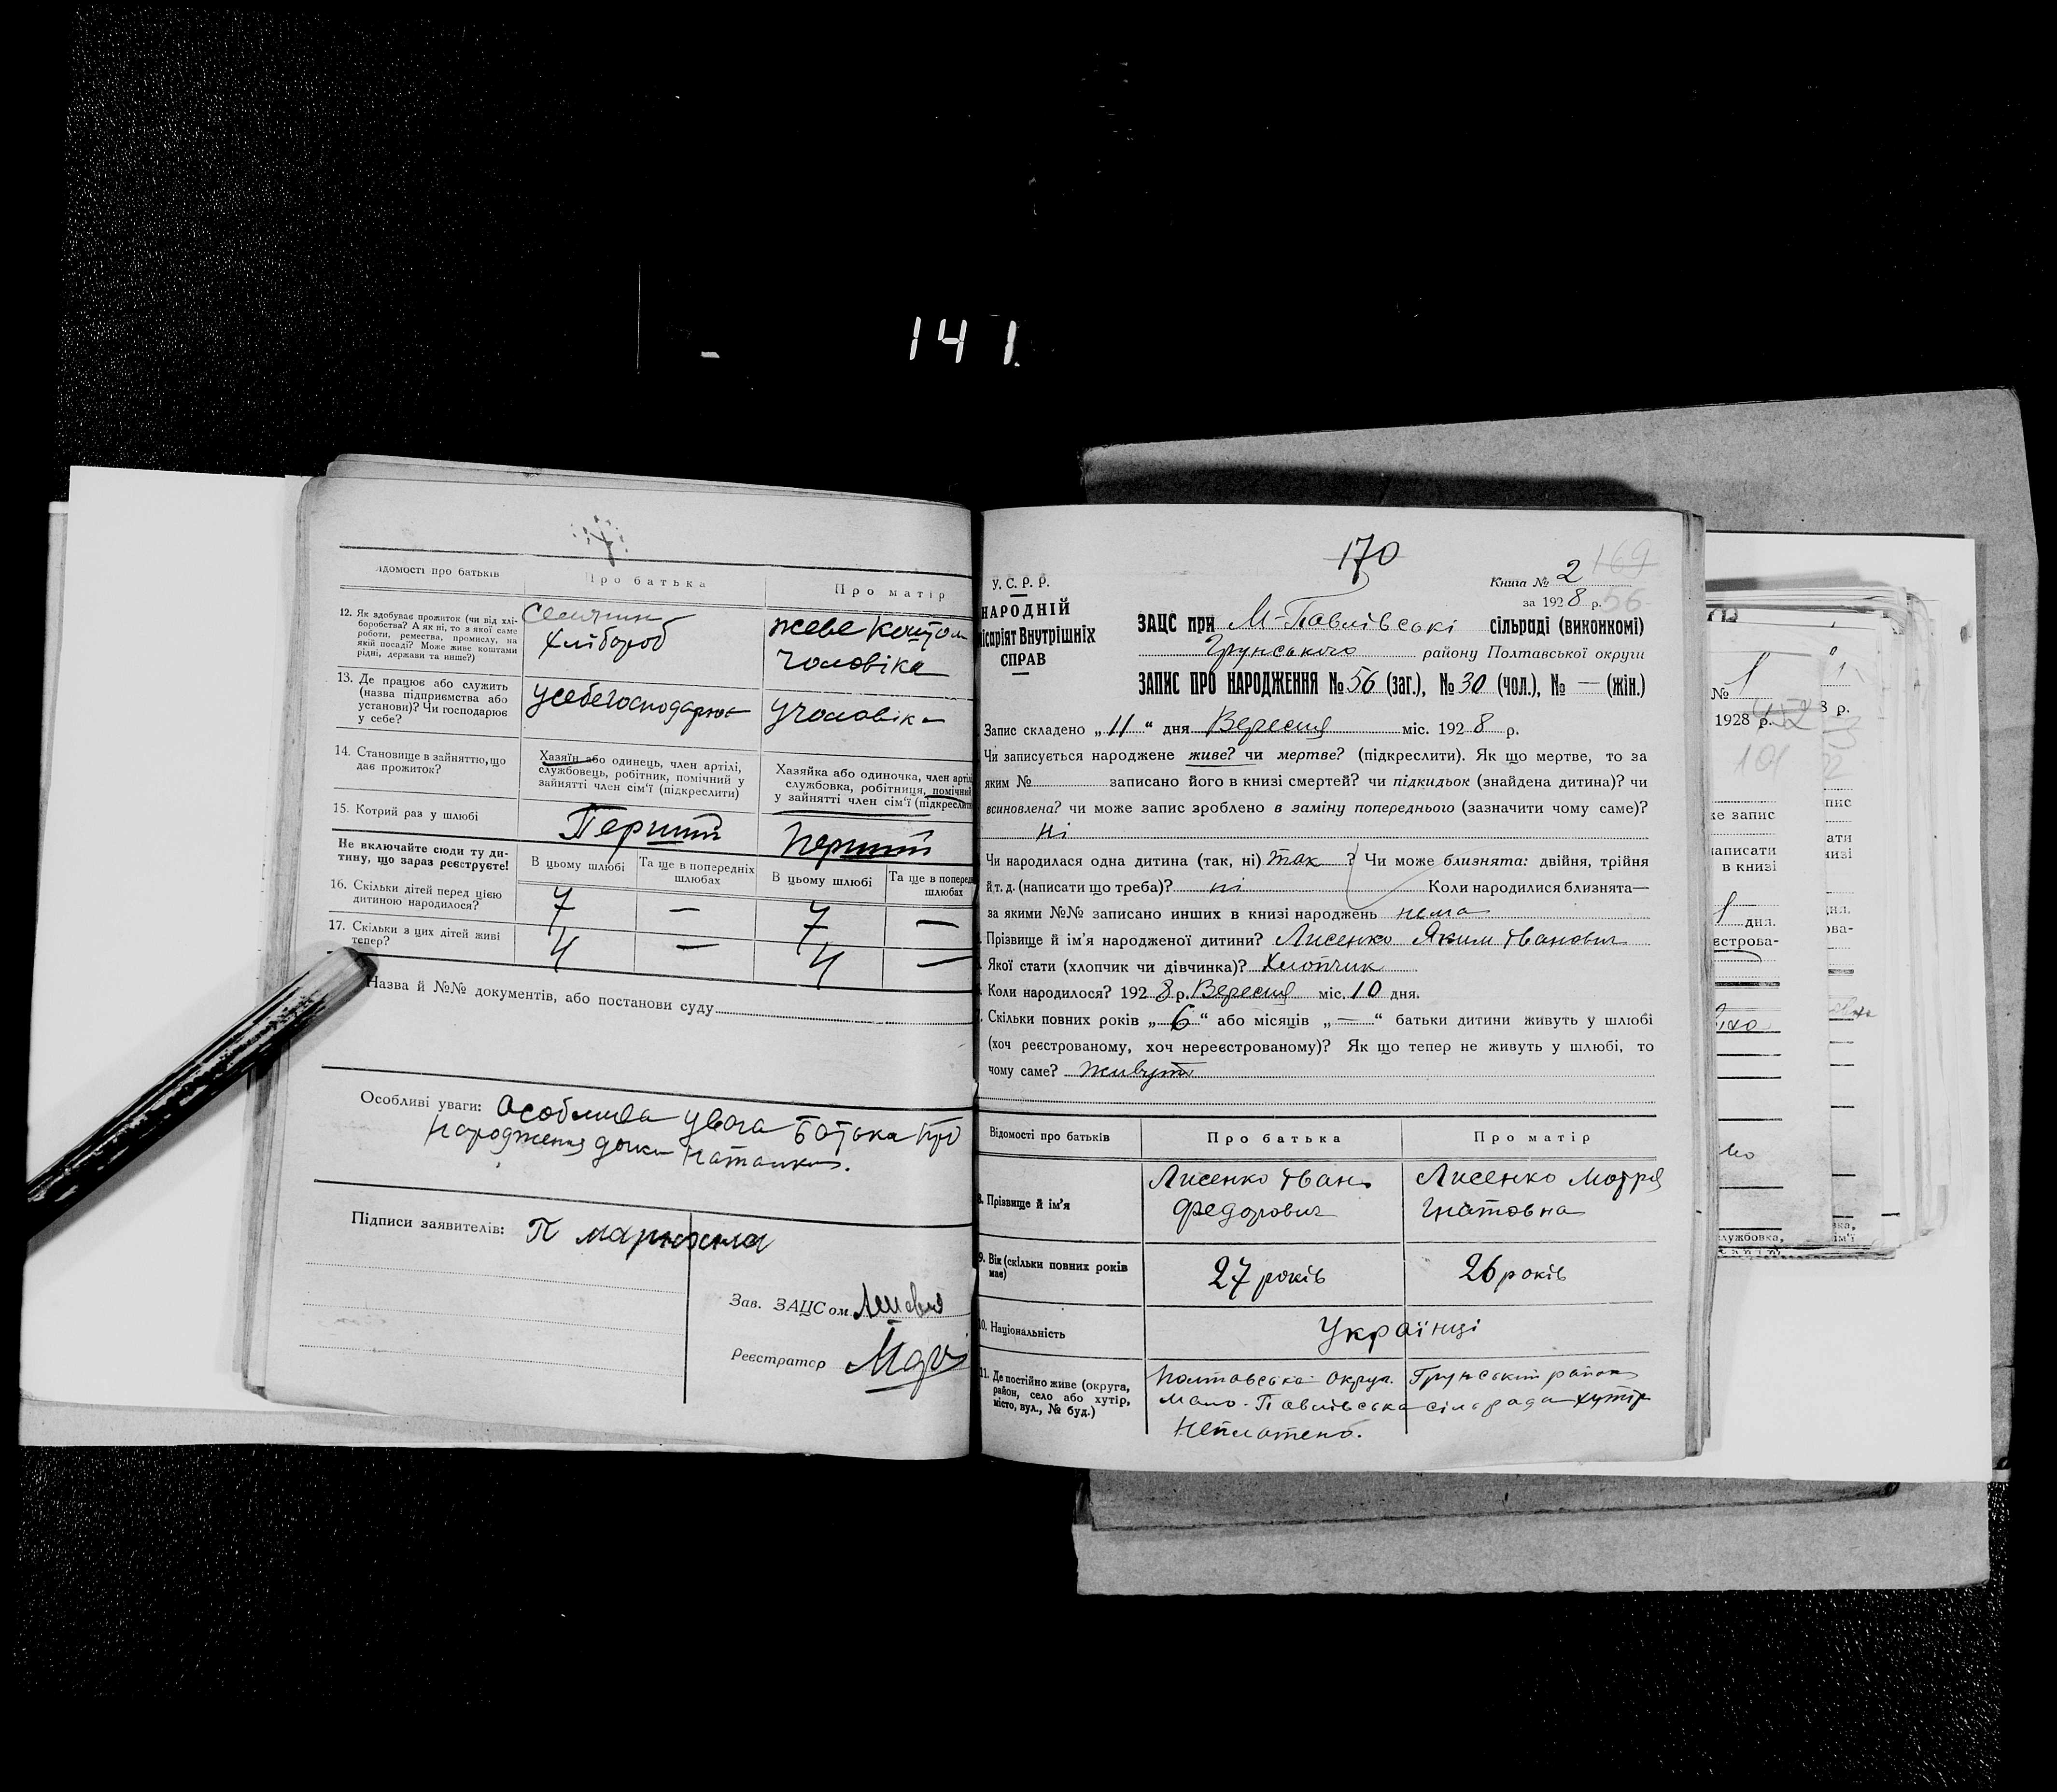 141.
Відомості про батьків
Про батька
Про матір
12. Як здобуває прожиток (чи від хлі-
боробства? А як ні, то з якої саме
роботи, ремества, промислу, на
якій посаді? Може живе коштами
рідні, держави та инше?)
Селянин
Хлібороб
живе коштом
чоловіка
13. Де працює або служить
(назва підприємства або
установи)? Чи господарює
у себе?
у себе господарює
у чоловіка
14. Становище в зайняттю, що
дає прожиток?
Хазяїн або одинець, член артілі,
службовець, робітник, помічний у
зайнятті член сім'ї (підкреслити)
Хазяйка або одиночка, член арті
службовка, робітниця, помічний
у зайнятті член сім'ї (підкреслити
15. Котрий раз у шлюбі
Перший
перший
Не включайте сюди ту ди-
тину, що зараз реєструєте!
В цьому шлюбі
Та ще в попередніх
шлюбах
В цьому шлюбі
Та ще в поперед
шлюбах
16. Скільки дітей перед цією
дитиною народилося?
7 — 7 —
17. Скільки з цих дітей живі
тепер?
4 — 4 —
Назва й №№ документів, або постанови суду
Особливі уваги: Особлива увага батька про
народження дочки Наталки.
Підписи заявителів:
Зав. ЗАЦСом
Реєстратор
170
169
У. С. Р. Р.
НАРОДНІЙ
місаріят Внутрішніх
СПРАВ
Книга № 2
за 1928 р. 56
ЗАЦС при М-Павлівські сільраді (виконкомі)
Грунського району Полтавської округи
ЗАПИС ПРО НАРОДЖЕННЯ № 56 (заг.), № 30 (чол.), № — (жін.)
Запис складено „11“ дня Вересня міс. 1928 р.
Чи записується народжене живе? чи мертве? (підкреслити). Як що мертве, то за
яким № записано його в книзі смертей? чи підкидьок (знайдена дитина)? чи
всиновлена? чи може запис зроблено в заміну попереднього (зазначити чому саме)?
ні
Чи народилася одна дитина (так, ні) так ? Чи може близнята: двійня, трійня
й т. д. (написати що треба)? ні Коли народилися близнята—
за якими №№ записано инших в книзі народжень нема
Прізвище й ім'я народженої дитини? Лисенко Яким Іванович
Якої стати (хлопчик чи дівчинка)? Хлопчик
Коли народилося? 1928 р. Вересня міс. 10 дня.
Скільки повних років „6“ або місяців „—“ батьки дитини живуть у шлюбі
(хоч реєстрованому, хоч нереєстрованому)? Як що тепер не живуть у шлюбі, то
чому саме? живуть
Відомості про батьків
Про батька
Про матір
8. Прізвище й ім'я
Лисенко Іван
Федорович
Лисенко Мотря
Гнатовна
9. Вік (скільки повних років
має)
27 років
26 років
10. Національність
Українці
11. Де постійно живе (округа,
район, село або хутір,
місто, вул., № буд.)
Полтавська округа Грунський район
Мало-Павлівська сільрада хутір
№ 1
1928 р.
101
8 р.
же запис
написати
в книзі
дня.
естрова-
службовка,